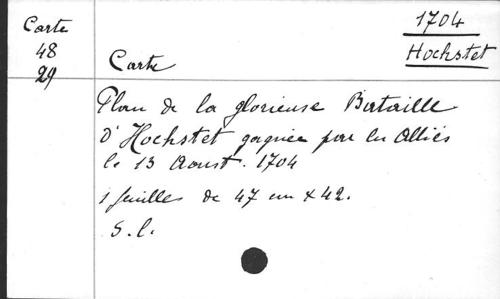 Carte
48
29
1704
Hochstet
Carte
Plan de la glorieuse Bataille
d'Hochstet gagnée par les Alliés
le 13 Aoust. 1704
1 feuilles de 47 cm x 42.
S.l.